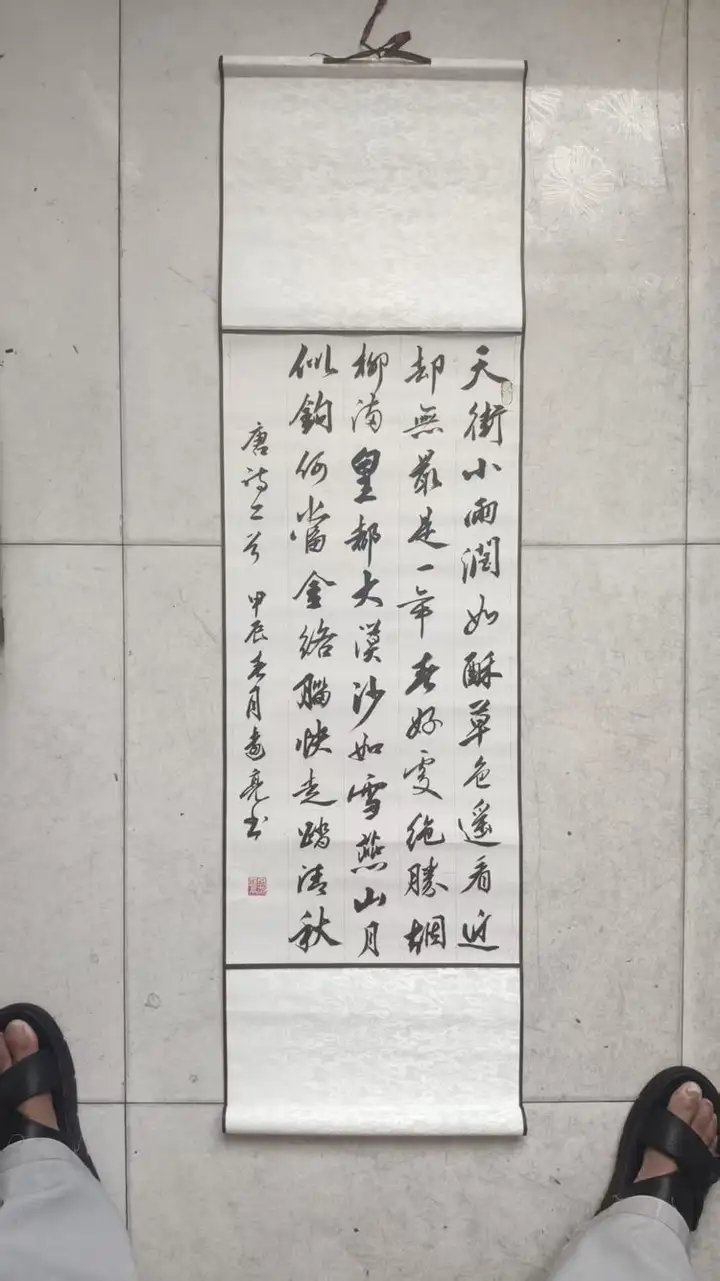 天街小雨潤如酥草色遥看近
却無最是一年春好處絶勝烟
柳满皇都大漠沙如雪燕山月
似鈎何當金絡腦快走踏清秋
唐詩二首 甲辰春月 亮书